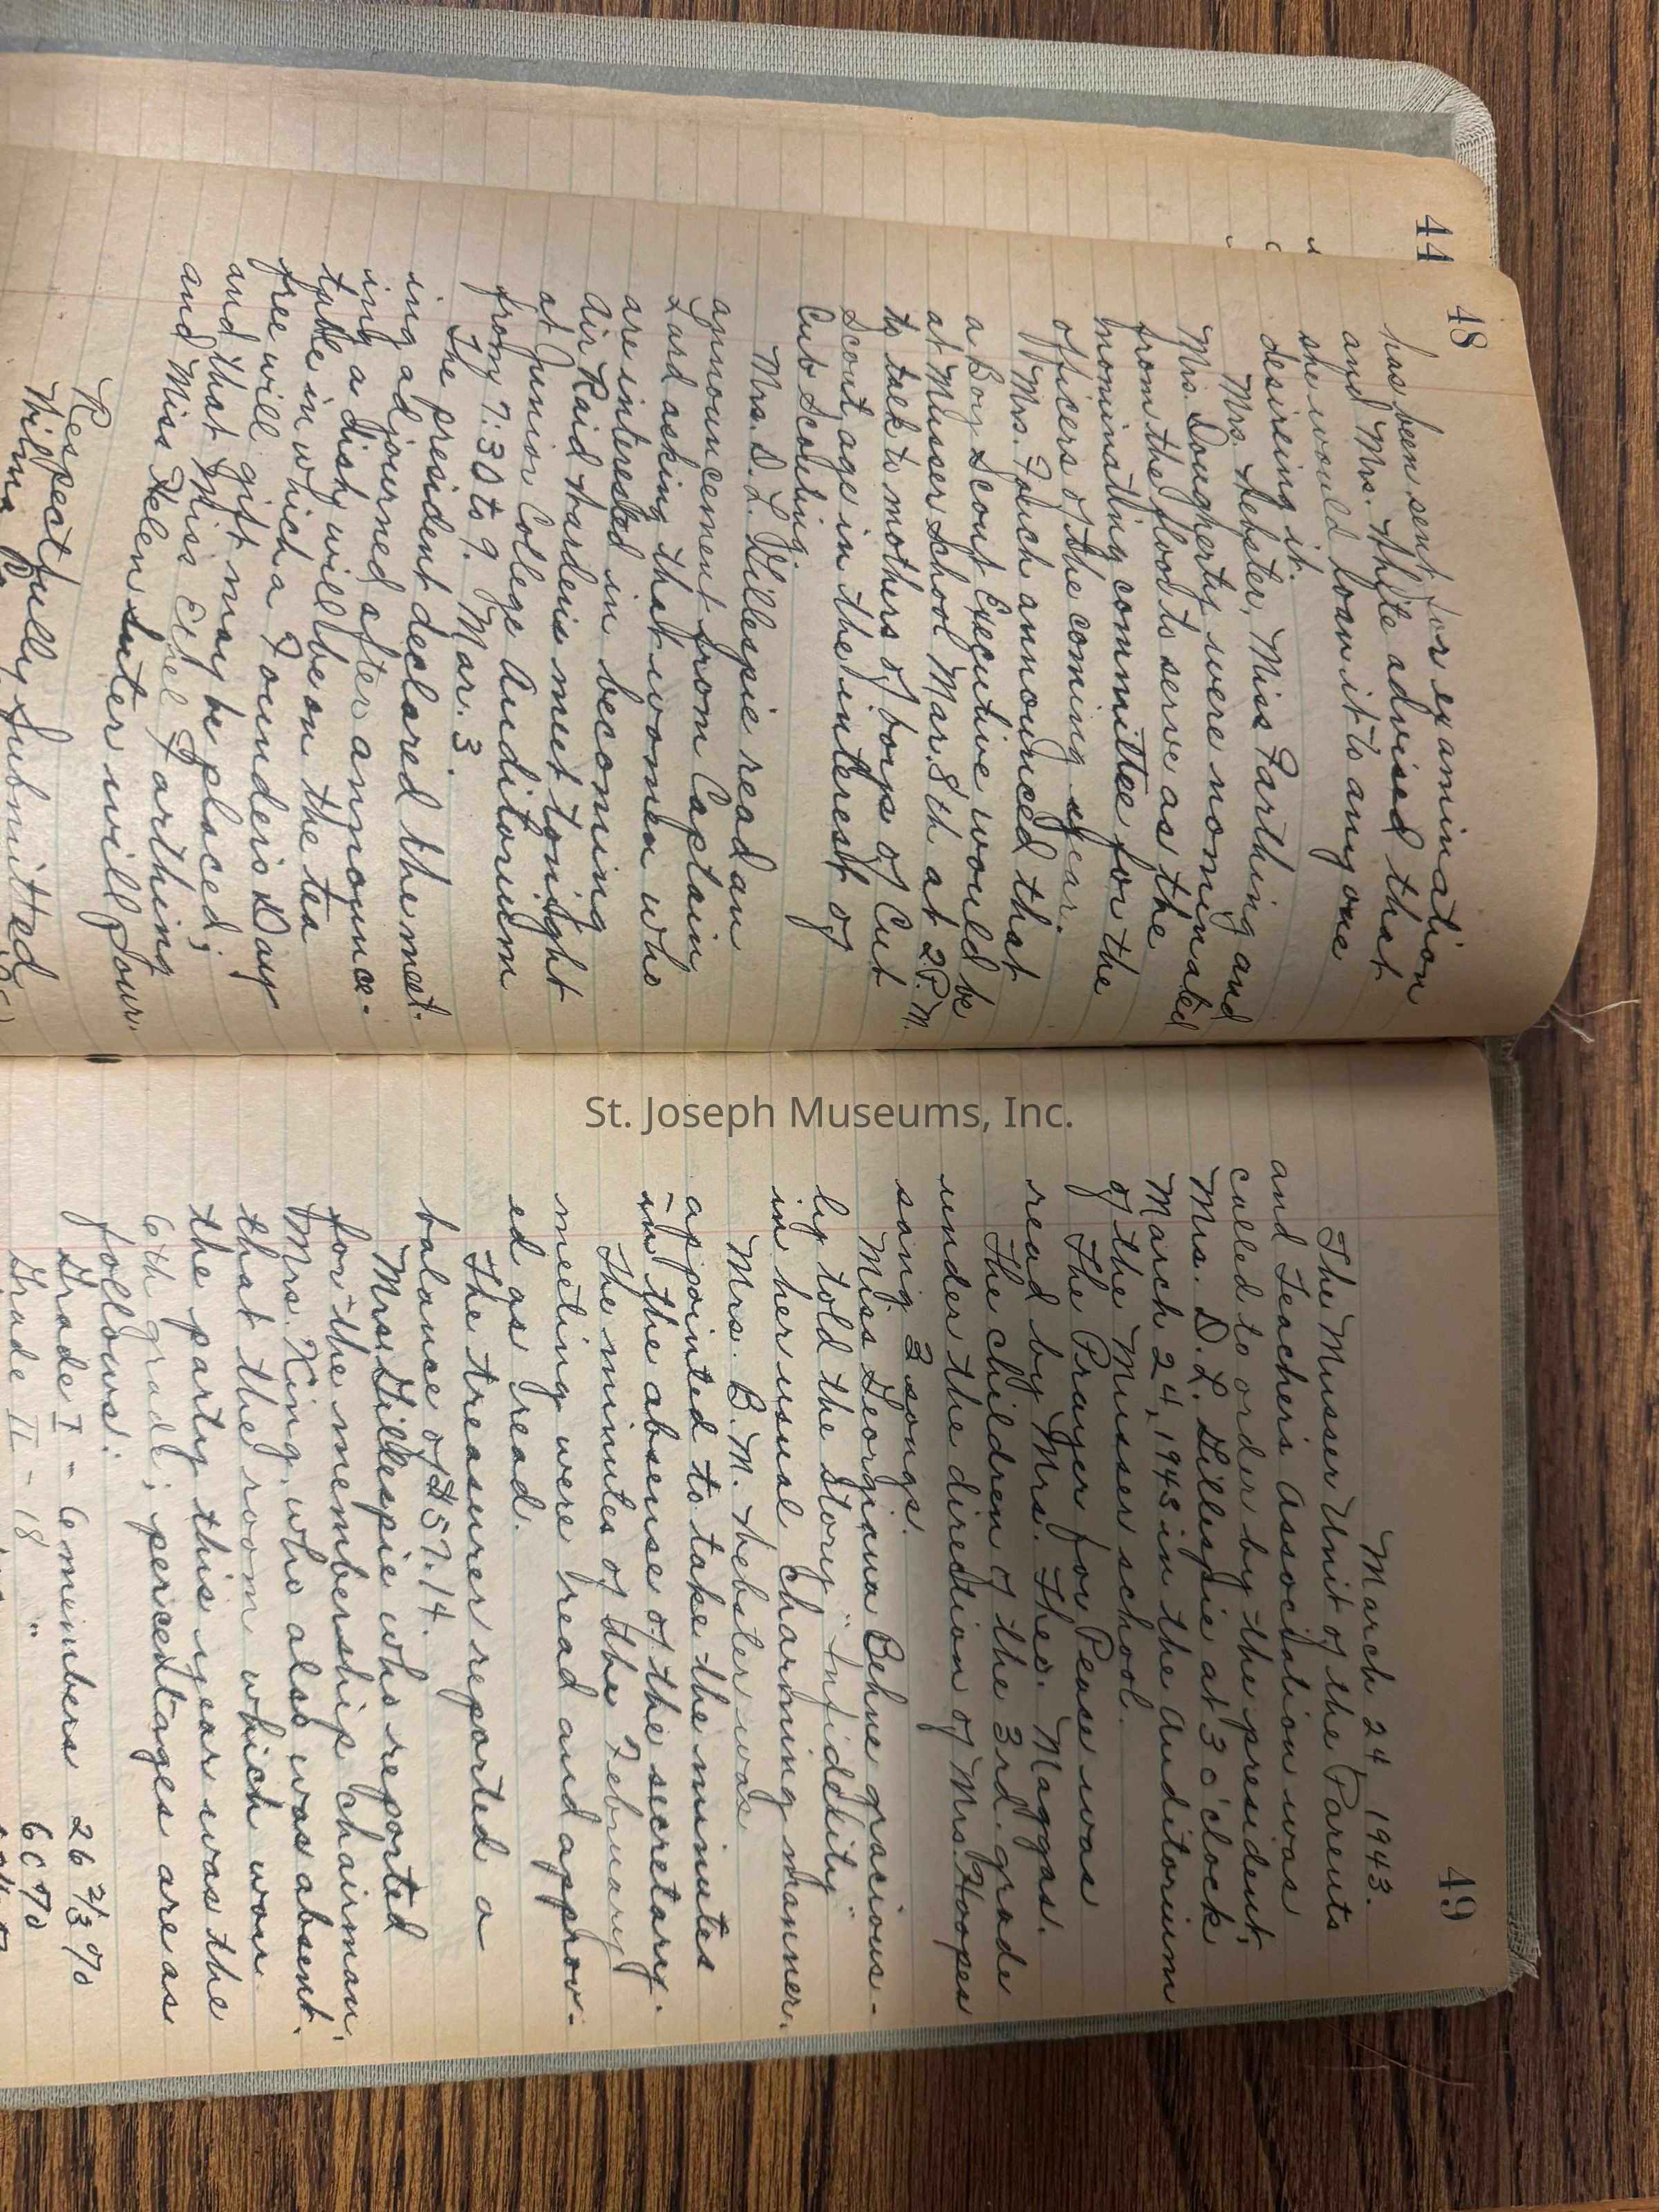 44
48
has been sent for examination
and Mrs. White advised that
she would loan it to any one
desireing it.
Mrs. Webster, Miss Farthing and
Mrs. Dougherty were nominated
from the flood to serve as the
nominating committee for the
officers of the coming year.
Mrs. Fouch announced that
a Boy Scout Executive would be
at Musser School Mar. 8th at 2 P.M.
to talk to mothers of boys of Cut
Scout age in the interest of
Cub Scouting.
Mrs. D. L. Gillespie read an
announcement from Captain
Lard asking that women who
are interested in becoming
Air Raid Wardens meet tonight
at Junior College Auditorium
from 7:30 to 9. Mar. 3.
The president declared the meet-
ing adjourned after announce-
ing a dish will be on the tea
table in which a Founders Day
free will gift may be placed;
and that Miss Ethel Farthing
and Miss Helen Suter will pour.
Respectfully Submitted
Wilma
49
March 24, 1943.
The Musser Unit of the Parents
and Teachers Association was
called to order by the president,
Mrs. D. L. Gillespie at 3 o'clock
March 24, 1943 in the Auditorium
of the Musser school.
The Prayer for Peace was
read by Mrs. Theo. Maggas.
The children of the 3rd. grade
under the direction of Mrs. Hoopes
sang 3 songs.
Miss Georgiana Behne gracious-
ly told the story "Infiddility"
in her usual charming manner.
Mrs. B. M. Webster was
appointed to take the minutes
in the absense of the secretary.
The minutes of the February
meeting were read and approv-
ed as read.
The treasurer reported a
balance of $57.14.
Mrs. Gillespie who reported
for the membership chairman,
Mrs. King, who also was absent,
that the room which won
the party this year was the
6th grade; percentages are as
follows:
Grade I - 6 members 26 2/3 %
Grade II - 18 " 60 %
St. Joseph Museums, Inc.